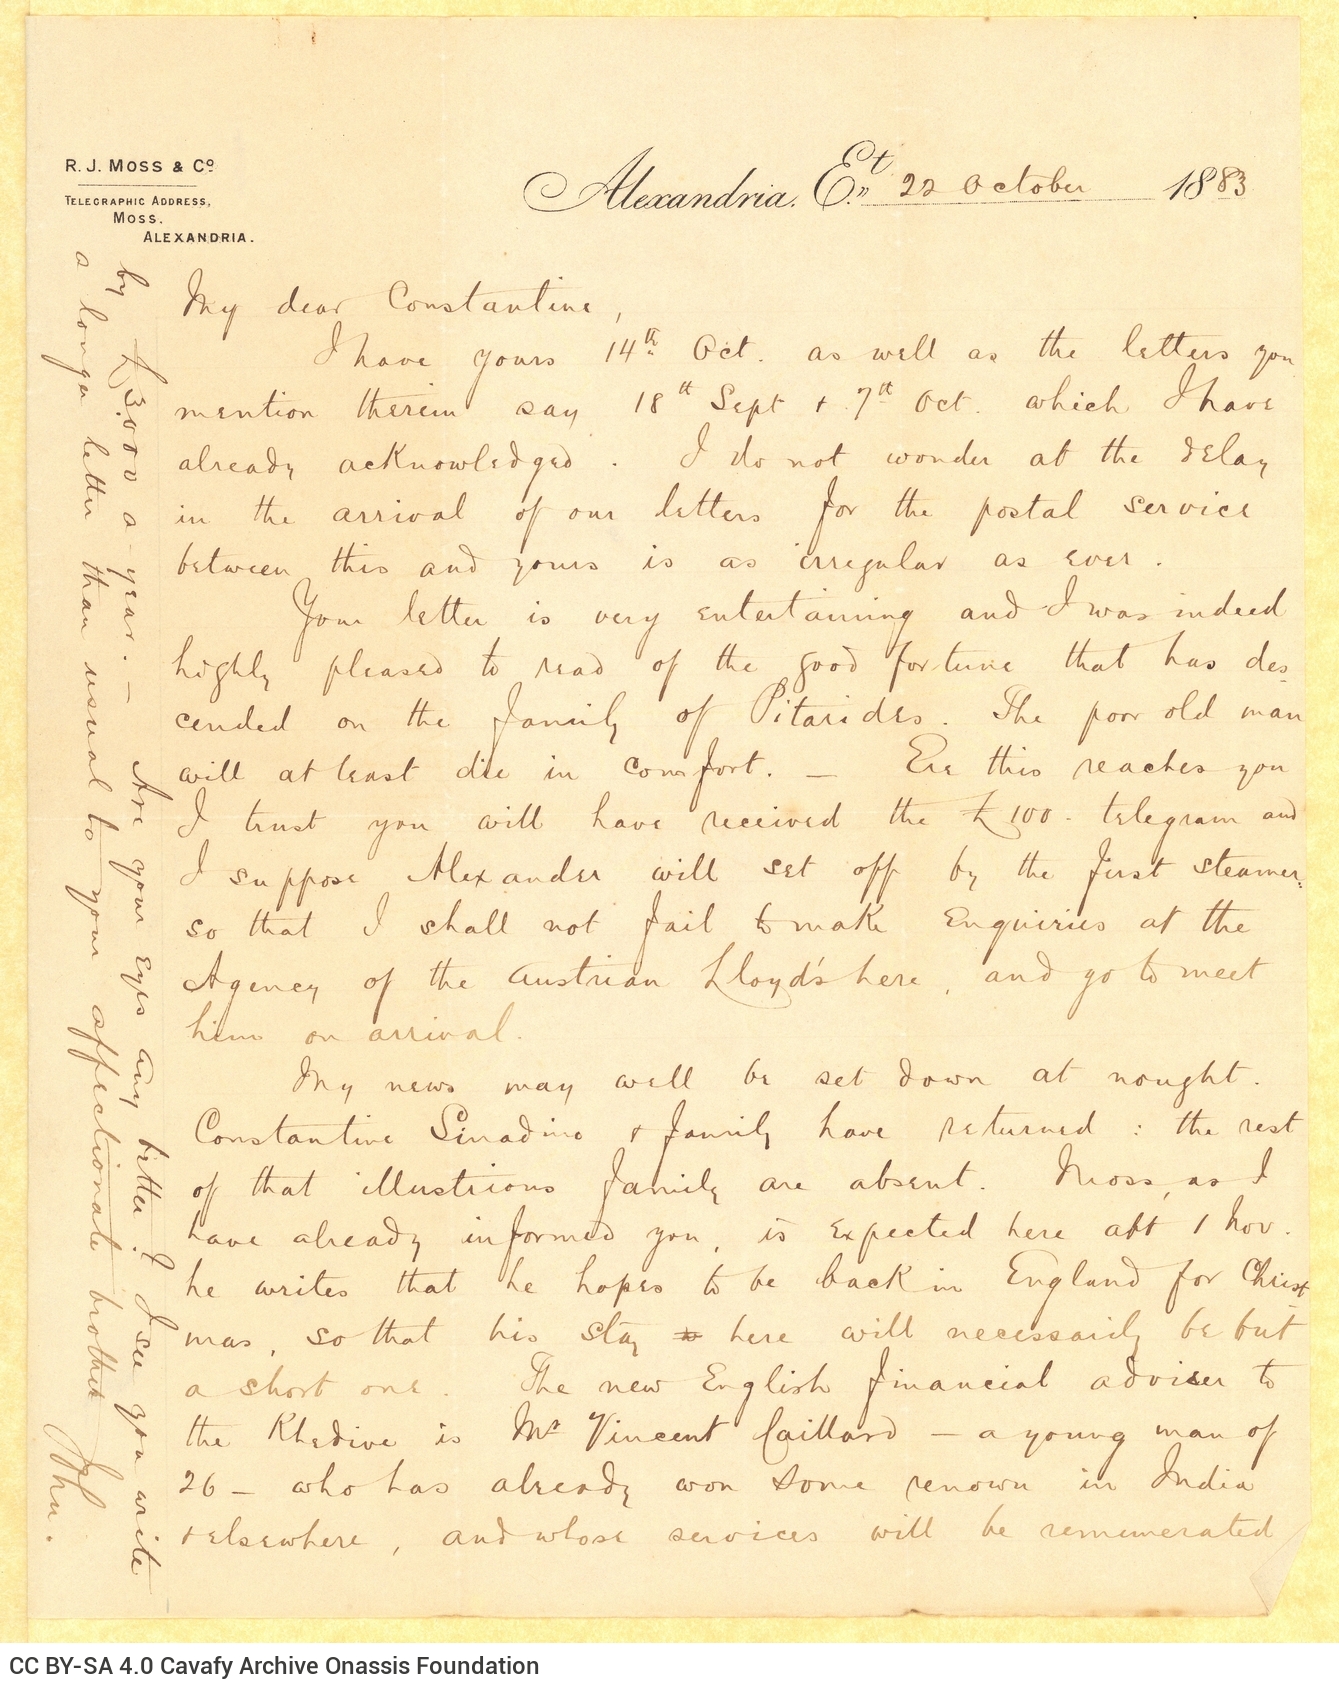 R. J. MOSS & Cº
TELEGRAPHIC ADDRESS,
MOSS.
ALEXANDRIA.
Alexandria. E.t 22 October 1883
My dear Constantine,
I have yours 14th Oct. as well as the letters you
mention therein say 18th Sept + 7th Oct. which I have
already acknowledged. I do not wonder at the delay
in the arrival of our letters for the postal service
between this and yours is as irregular as ever.
Your letter is very entertaining and I was indeed
highly pleased to read of the good fortune that has des-
cended on the family of Pitarides. The poor old man
will at least die in comfort. — Ere this reaches you
I trust you will have received the £100 - telegram and
I suppose Alexander will set off by the first steamer:
so that I shall not fail to make Enquiries at the
Agency of the Austrian Lloyd's here, and go to meet
him on arrival.
My news may well be set down at nought.
Constantine Sinadino + family have returned : the rest
of that illustrious family are absent. Moss, as I
have already informed you, is expected here abt 1 Nov.
he writes that he hopes to be back in England for Christ-
mas, so that his stay here will necessarily be but
a short one. The new English financial adviser to
the Khedive is Mr Vincent Caillard — a young man of
26 — who has already won some renown in India
+ elsewhere, and whose services will be remunerated
by £3.000 a year. — Are your eyes any better? I see you write
a longer letter than usual to your affectionate brother
John.
CC BY-SA 4.0 Cavafy Archive Onassis Foundation